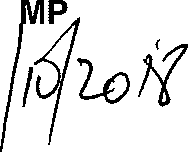 MP
/10/2018